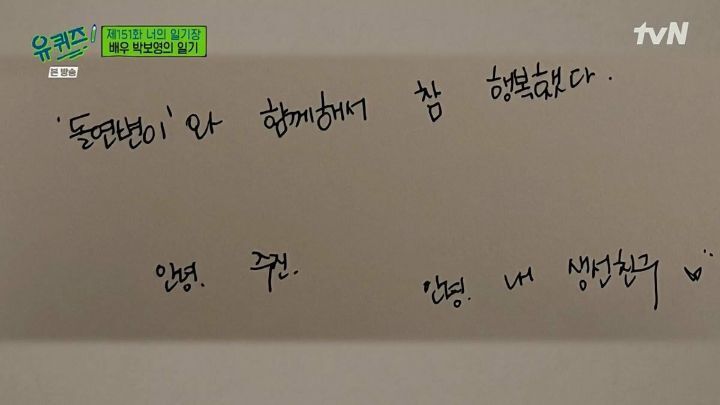 유퀴즈!
본 방송
제151화 너의 일기장
배우 박보영의 일기
tvN
'돌연변이'와 함께해서 참 행복했다.
안녕. 주진. 안녕. 내 생선친구